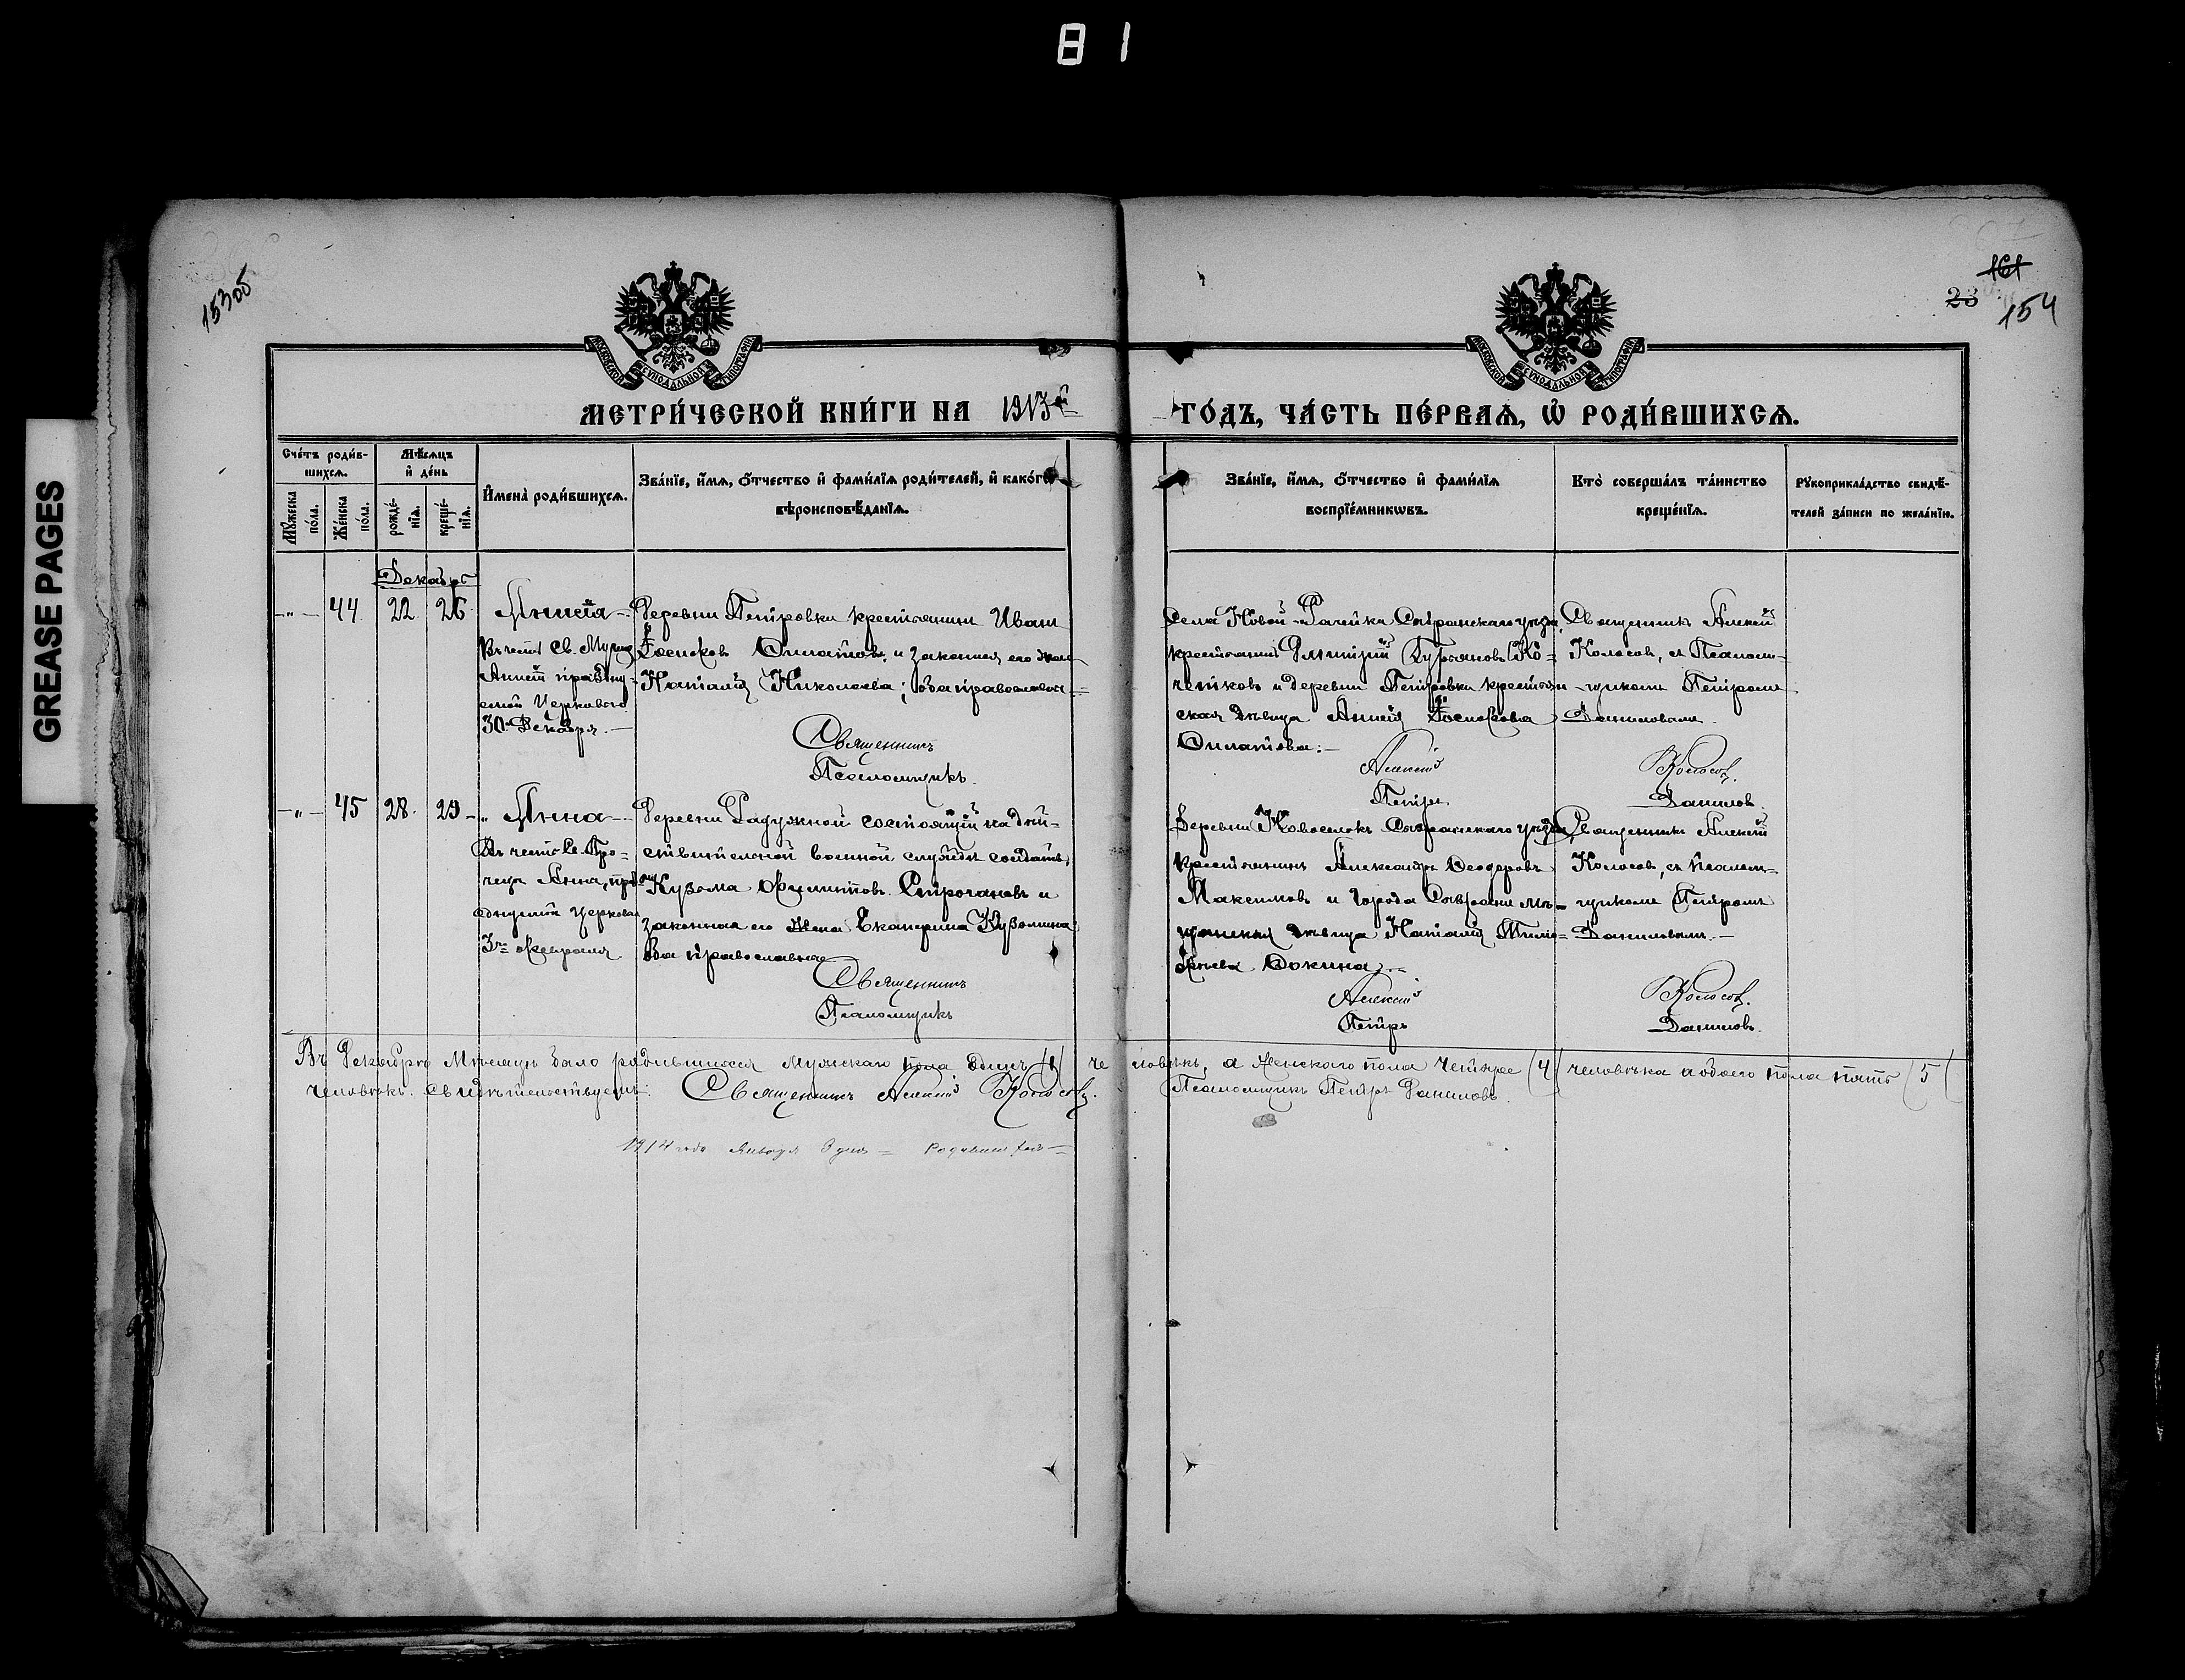 81
GREASE PAGES
153об
161
23
154
МОСКОВСКОЙ СѴНОДАЛЬНОЙ ТИПОГРАФІИ
МОСКОВСКОЙ СѴНОДАЛЬНОЙ ТИПОГРАФІИ
МЕТРИ́ЧЕСКОЙ КНИ́ГИ НА 1913й ГО́ДЪ, ЧА́СТЬ ПЕ́РВАѦ, Ѡ҆ РОДИ́ВШИХСѦ.
Сче́тъ роди́в-
шихсѧ.
Мꙋ́жеска по́ла.
Же́нска по́ла.
Мѣ́сѧцъ
и҆ де́нь
рожде́-
нїѧ.
креще́-
нїѧ.
И҆мена̀ роди́вшихсѧ.
Зва́нїе, и҆́мѧ, ѻ҆́тчество и҆ фами́лїѧ роди́телей, и҆ како́гѡ
вѣроисповѣ́данїѧ.
Зва́нїе, и҆́мѧ, ѻ҆́тчество и҆ фами́лїѧ
воспрїе́мникѡвъ.
Кто̀ соверша́лъ та́инство
креще́нїѧ.
Рꙋкоприкла́дство свидѣ́-
телей за́писи по жела́нїю.
Декабрь
-"- 44. 22. 26. Анисія -
Въ честь Св. Мучен.
Анисіи праздну-
емой Церковью
30го Декабря. -
Деревни Петровки крестьянинъ Иванъ
Филатовъ, и законная его жена
Наталія Николаева; оба православные
Священникъ
Псаломщикъ.
Села Новой-Рачейки Сызранскаго уѣзда,
крестьянинъ Димитрій Ко-
четковъ и деревни Петровки крестьян-
ская дѣвица Анисія
Филатова. -
Алексій
Петръ
Священникъ Алексій
Колосовъ, съ Псалом-
щикомъ Петромъ
Даниловымъ.
Колосовъ.
Данилов.
-"- 45 28. 29 - " Анна -
Въ честь Св. Про-
роч. Анны, праз-
днуемой Церковью
3го Февраля
Деревни Радужной состоящій на дѣй-
ствительной военной службѣ солдатъ,
Кузьма Филиповъ Строгановъ и
законная его жена Екатерина Кузьмина
оба православные
Священникъ
Псаломщикъ
Деревни Новоселокъ Сызранскаго уѣзда,
крестьянинъ Александръ Ѳеодоровъ
Максимовъ и города Сызрани мѣ-
щанская дѣвица Наталія Тимо-
феева Фокина. -
Алексій
Петръ
Священникъ Алексій
Колосовъ, съ псалом-
щикомъ Петромъ
Даниловымъ. -
Колосовъ.
Даниловъ.
Въ Декабрѣ Мѣсяцѣ было родившихся Мужскаго пола Одинъ (1) че ловѣкъ, а Женскаго пола Четыре (4) человѣка а обоего пола пять (5)
человѣкъ. Свидѣтельствуемъ: Священникъ Алексій Колосовъ. Псаломщикъ Петръ Даниловъ.
1914 года Января дня =